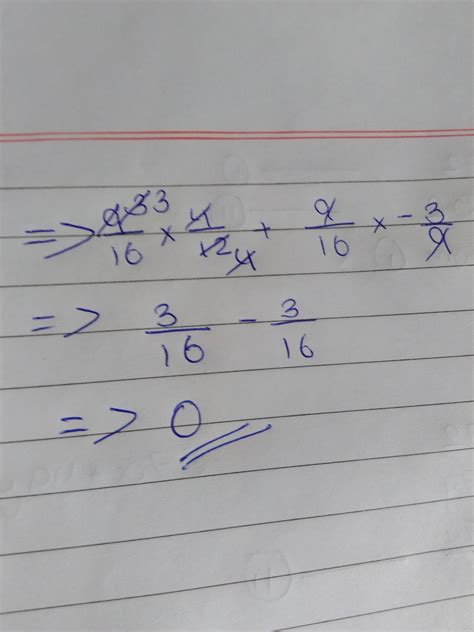 => 9/16 × 4/12 + 9/16 × -3/9
=> 3/16 - 3/16
=> 0